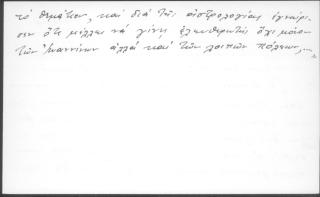 τὸ θεμάτιον, καὶ διὰ τῆς ἀστρολογίας ἐγνώρι-
σεν ὅτι μέλλει νὰ γίνῃ ἐλευθερωτὴς ὄχι μόνον
τῶν Ἰωαννίνων ἀλλὰ καὶ τῶν λοιπῶν πόλεων,...